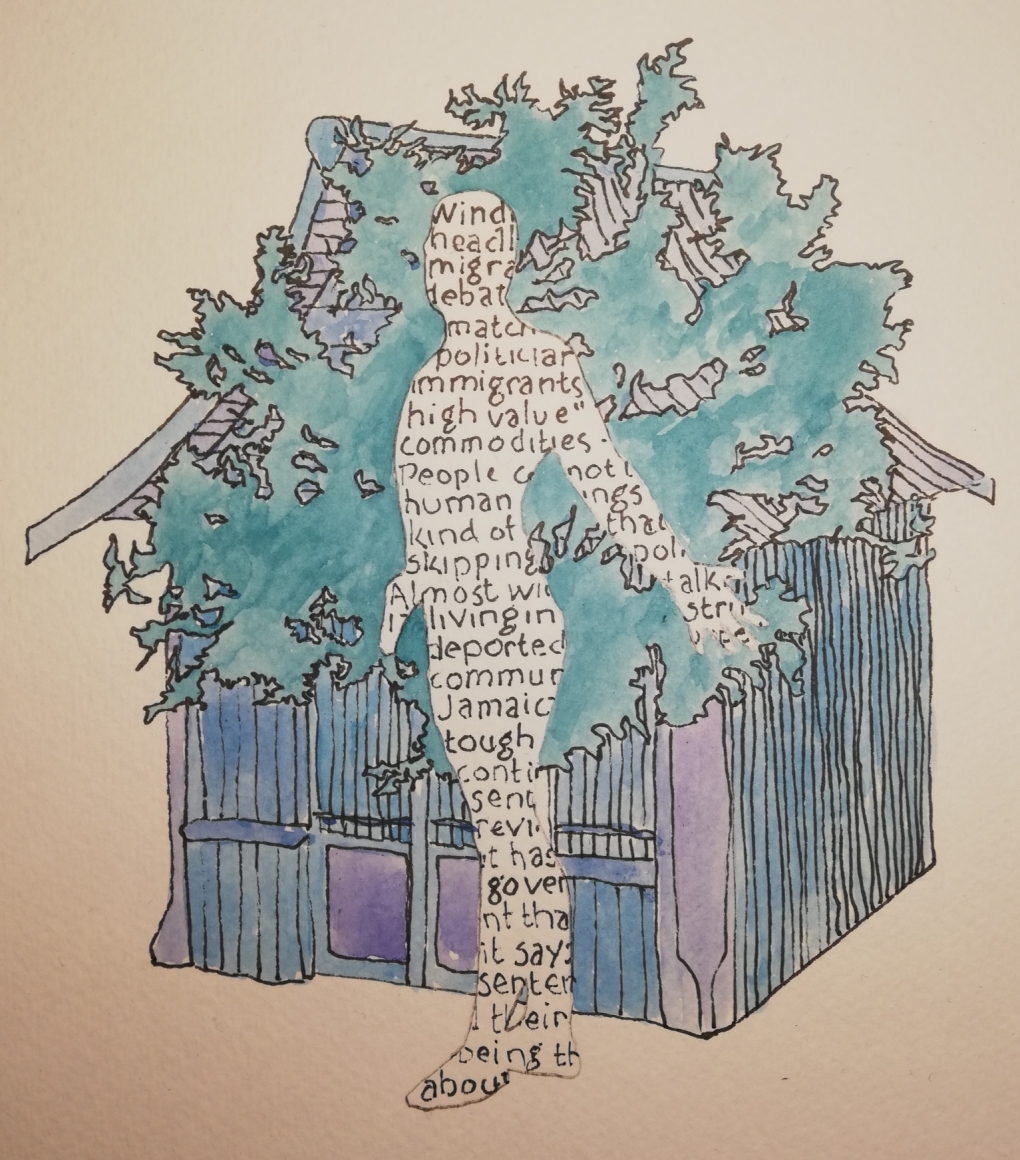 Wind
headl
migra
debat
match
politician
immigrants
high value"
commodities.
People ca not
human ings
kind of that
skipping poli
Almost wi talk
living in stri
deported
commun
Jamaic
tough
contin
sent
revi
it has
gover
nt tha
it says
senten
their
being th
about